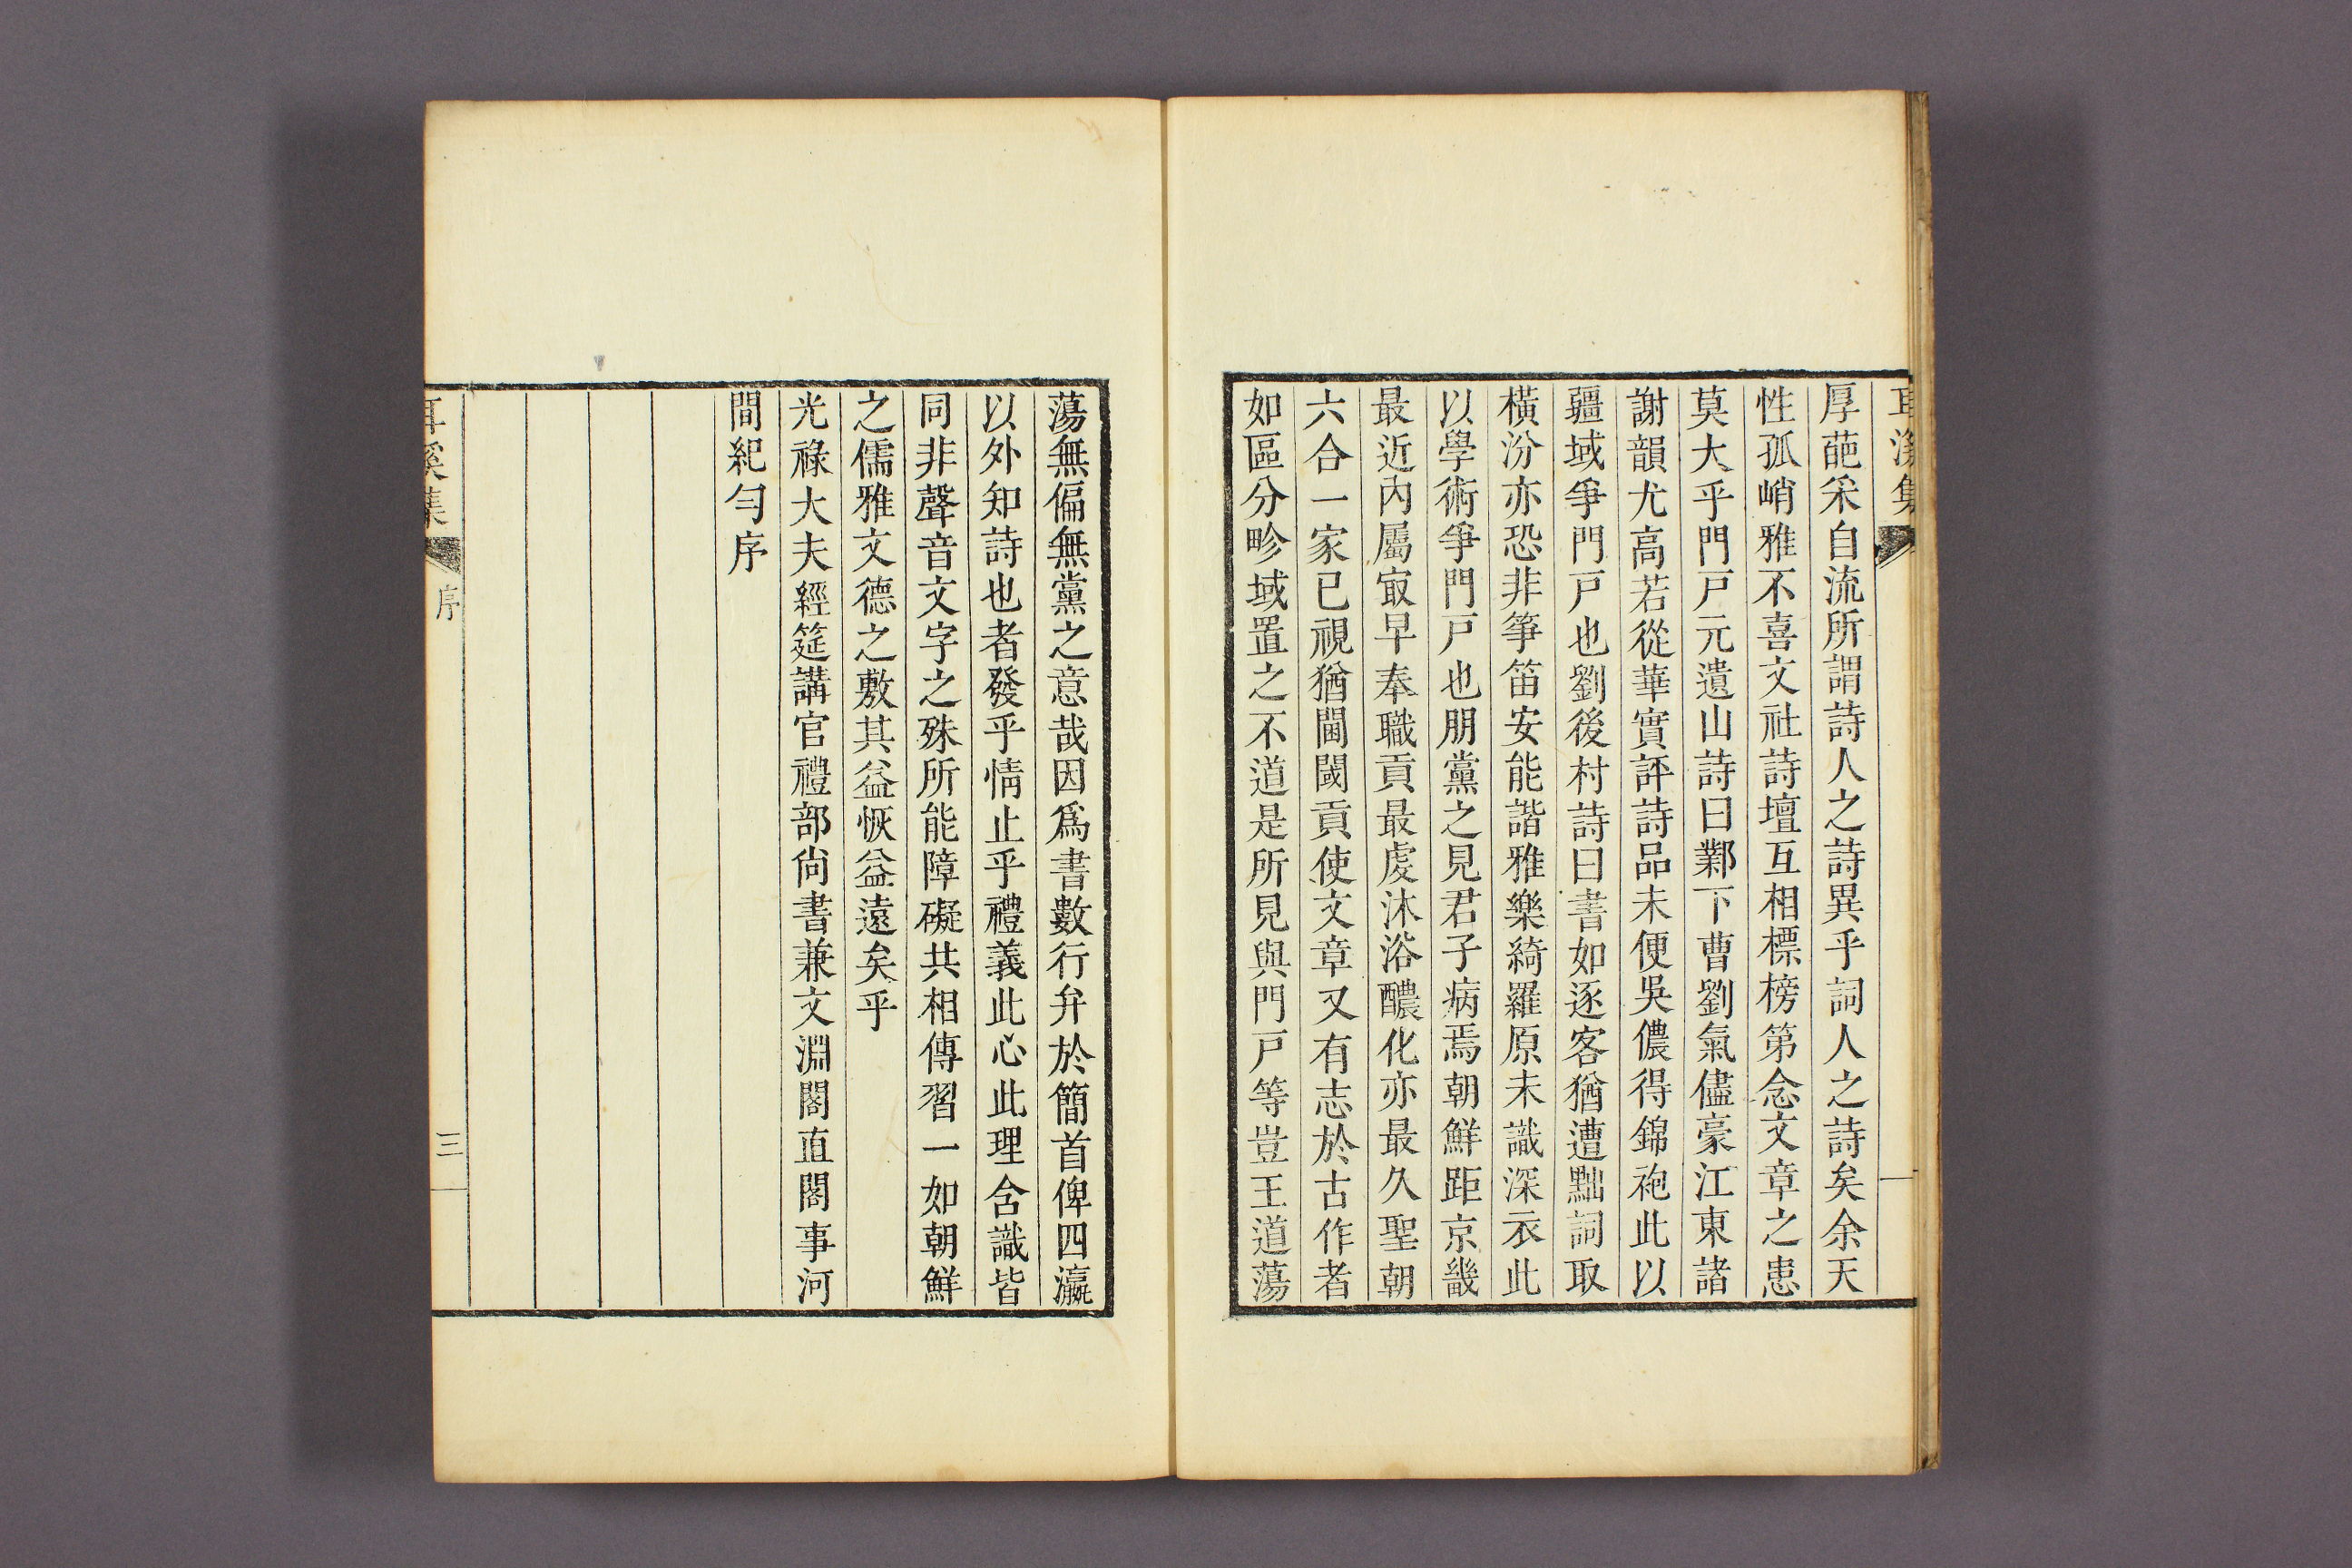 耳溪集
厚葩采自流所謂詩人之詩異乎詞人之詩矣余天
性孤峭雅不喜文社詩壇互相標榜第念文章之患
莫大乎門戸元遺山詩曰鄴下曹劉氣儘豪江東諸
謝韻尤高若從華實評詩品未便吳儂得錦袍此以
疆域爭門戸也劉後村詩曰書如逐客猶遭黜詞取
橫汾亦恐非箏笛安能諧雅樂綺羅原未識深衣此
以學術爭門戸也朋黨之見君子病焉朝鮮距京畿
最近內屬㝡早奉職貢最虔沐浴醲化亦最久聖朝
六合一家已視猶閫閾貢使文章又有志於古作者
如區分畛域置之不道是所見與門戸等豈王道蕩
蕩無偏無黨之意哉因爲書數行弁於簡首俾四瀛
以外知詩也者發乎情止乎禮義此心此理含識皆
同非聲音文字之殊所能障礙共相傳習一如朝鮮
之儒雅文德之敷其益恢益遠矣乎
光祿大夫經筵講官禮部尙書兼文淵閣直閣事河
間紀勻序
耳溪集
序
三